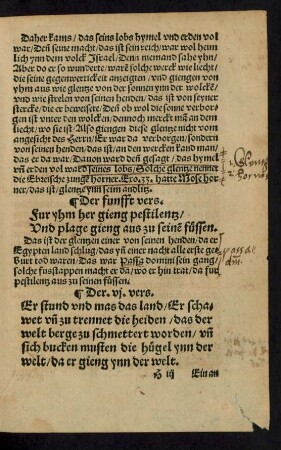 Daher kams/das seins lobs hymel vnd erden vol
war/Deñ seine macht/das ist sein reich/war wol heim
lich ynn dem volck Israel/Denn niemand sahe yhn/
Aber do er so wunderte/warẽ solche werck wie liecht/
die seine gegenwertickeit anzeigten/vnd giengen von
yhm aus wie glentze von der sonnen ynn der wolckẽ/
vnd wie strelen von seinen henden/das ist von seyner
stercke/der er beweisete/Deñ ob wol die sonne verbor
gen ist vnter den wolcken/dennoch merck mã an dem
liecht/wo sie ist Also giengen diese glentze nicht vom
angesicht des Herrn/Er war da verborgen/sondern
von seinen henden/das ist/an den wercken kand man/
das er da war/Dauon ward deñ gesagt/das hymel
vñ erden vol ward seines lobs/Solche glentze nennet
die Ebreische zunge horner/Exo.33. hatte Mose hor
ner/das ist/glentze ynn seim andlitz.
¶ Der funfft vers.
Fur yhm her gieng pestilentz/
Vnd plage gieng aus zu seinẽ füssen.
Das ist der glentzen einer von seinen henden/da er
Egypten land schlug/das yñ einer nacht alle erste ge
burt tod waren/Das war Passa domini sein gang/
solche fusstappen macht er da/wo er hin trat/da fur
pestilentz aus zu seinen füssen.
¶ Der. vj. vers.
Er stund vnd mas das land/Er scha-
wet vñ zu trennet die heiden/das der
welt berge zu schmettert worden/vñ
sich bucken musten die hügel ynn der
welt/da er gieng ynn der welt.
H iij Ein an